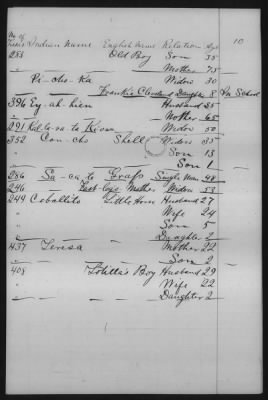 No of
Indian Name English Name Relation Age 10
288 Old Boy Son 35
" Mother 75
" Pi-cho-ka Widow 30
Frankie Cleveland Daughter 8 In School
396 Ey-ah-hien Husband 35
" Mother 65
291 Widow 50
352 Con-cho Shell Widow 35
" Son 13
" Son 1
286 Sa-ca-to Grass Single Man 48
246 Mother Widow 53
249 Caballito Little Horse Husband 27
" Wife 24
" Son 5
" Daughter 2
437 Teresa Mother 22
" Son 2
408 Boy Husband 29
" Wife 22
" Daughter 2